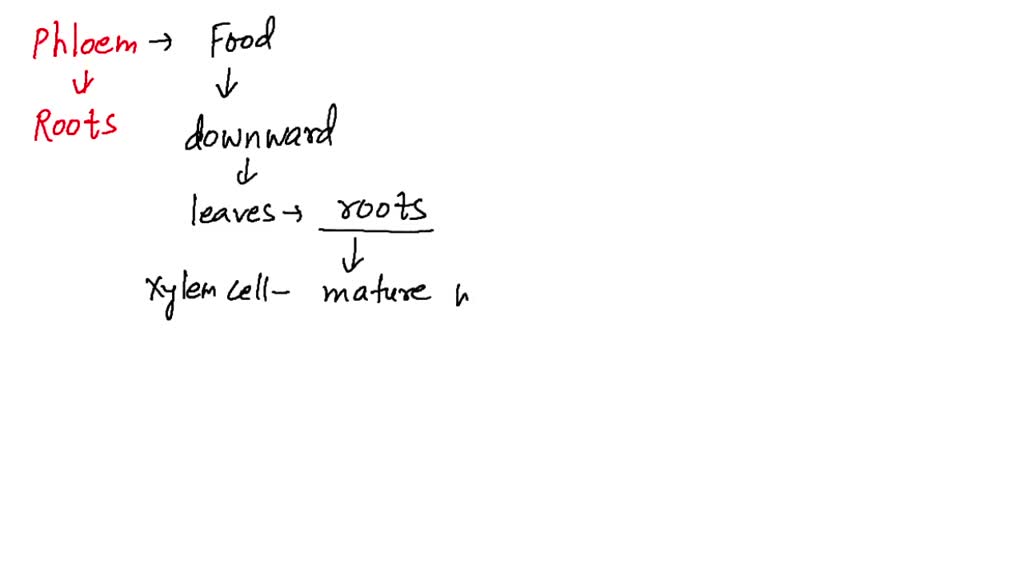 Phloem → Food
↓ ↓
Roots downward
↓
leaves → roots
↓
Xylem cell - mature